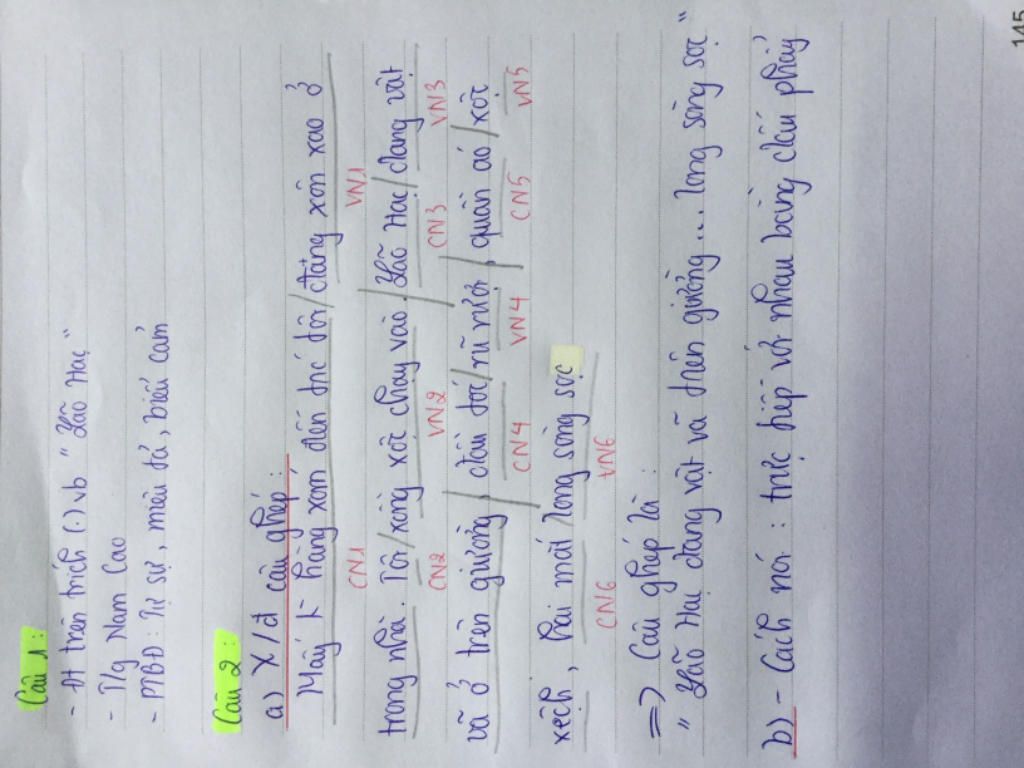 Câu 1:
- Đt trên trích (.) vb " Lão Hạc "
- T/g Nam Cao
- PTBĐ: Tự sự, miêu tả, biểu cảm
Câu 2:
a) X/đ câu ghép:
Mấy hàng xóm đến trc tôi / đang xôn xao ở
CN1 VN1
trong nhà. Tôi / xồng xộc chạy vào. Lão Hạc / đang vật
CN2 VN2 CN3 VN3
vã ở trên giường, đầu tóc / rũ rượi, quần áo / xộc
CN4 VN4 CN5 VN5
xệch, hai mắt / long sòng sọc
CN6 VN6
=> Câu ghép là:
" Lão Hạc đang vật vã trên giường... long sòng sọc "
b) - Cách nối: trực tiếp với nhau bằng dấu phẩy
145